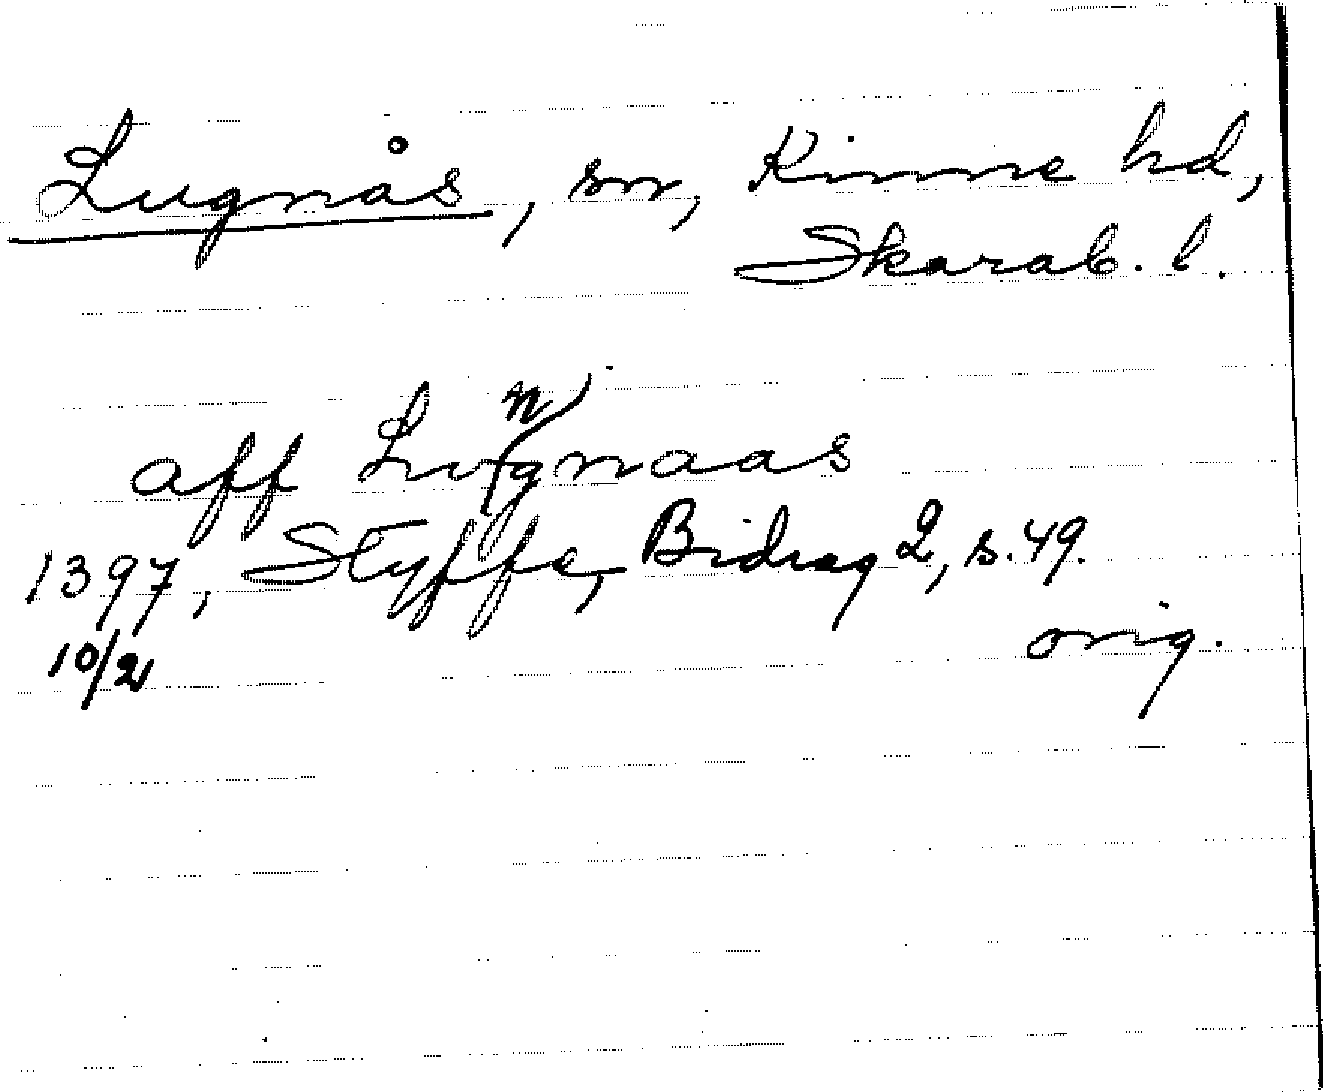 Lugnås, sn, Kinne hd,
Skarab. l.
aff Lungnaas
1397, Styffe, Bidrag 2, s. 49.
10/2 orig.